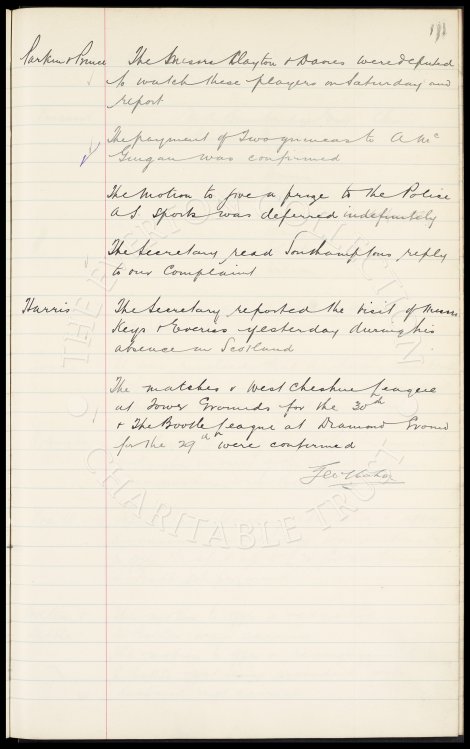 111
Parkin & Prince The Messrs Clayton & Davies were deputed
to watch these players on Saturday and
report
The payment of Two guineas to A Mc
Guigan was confirmed
The Motion to give a prize to the Police
A.S. Sports was deferred indefinitely
The Secretary read Southamptons reply
to our Complaint
Harris The Secretary reported the visit of Messrs
Keys & Everiss yesterday during his
absence in Scotland
The matches v West Cheshire League
at Tower Grounds for the 30th
& The Bootle League at Diamond Ground
for the 29th were confirmed
Geo Mahon
THE EVERTON COLLECTION
CHARITABLE TRUST